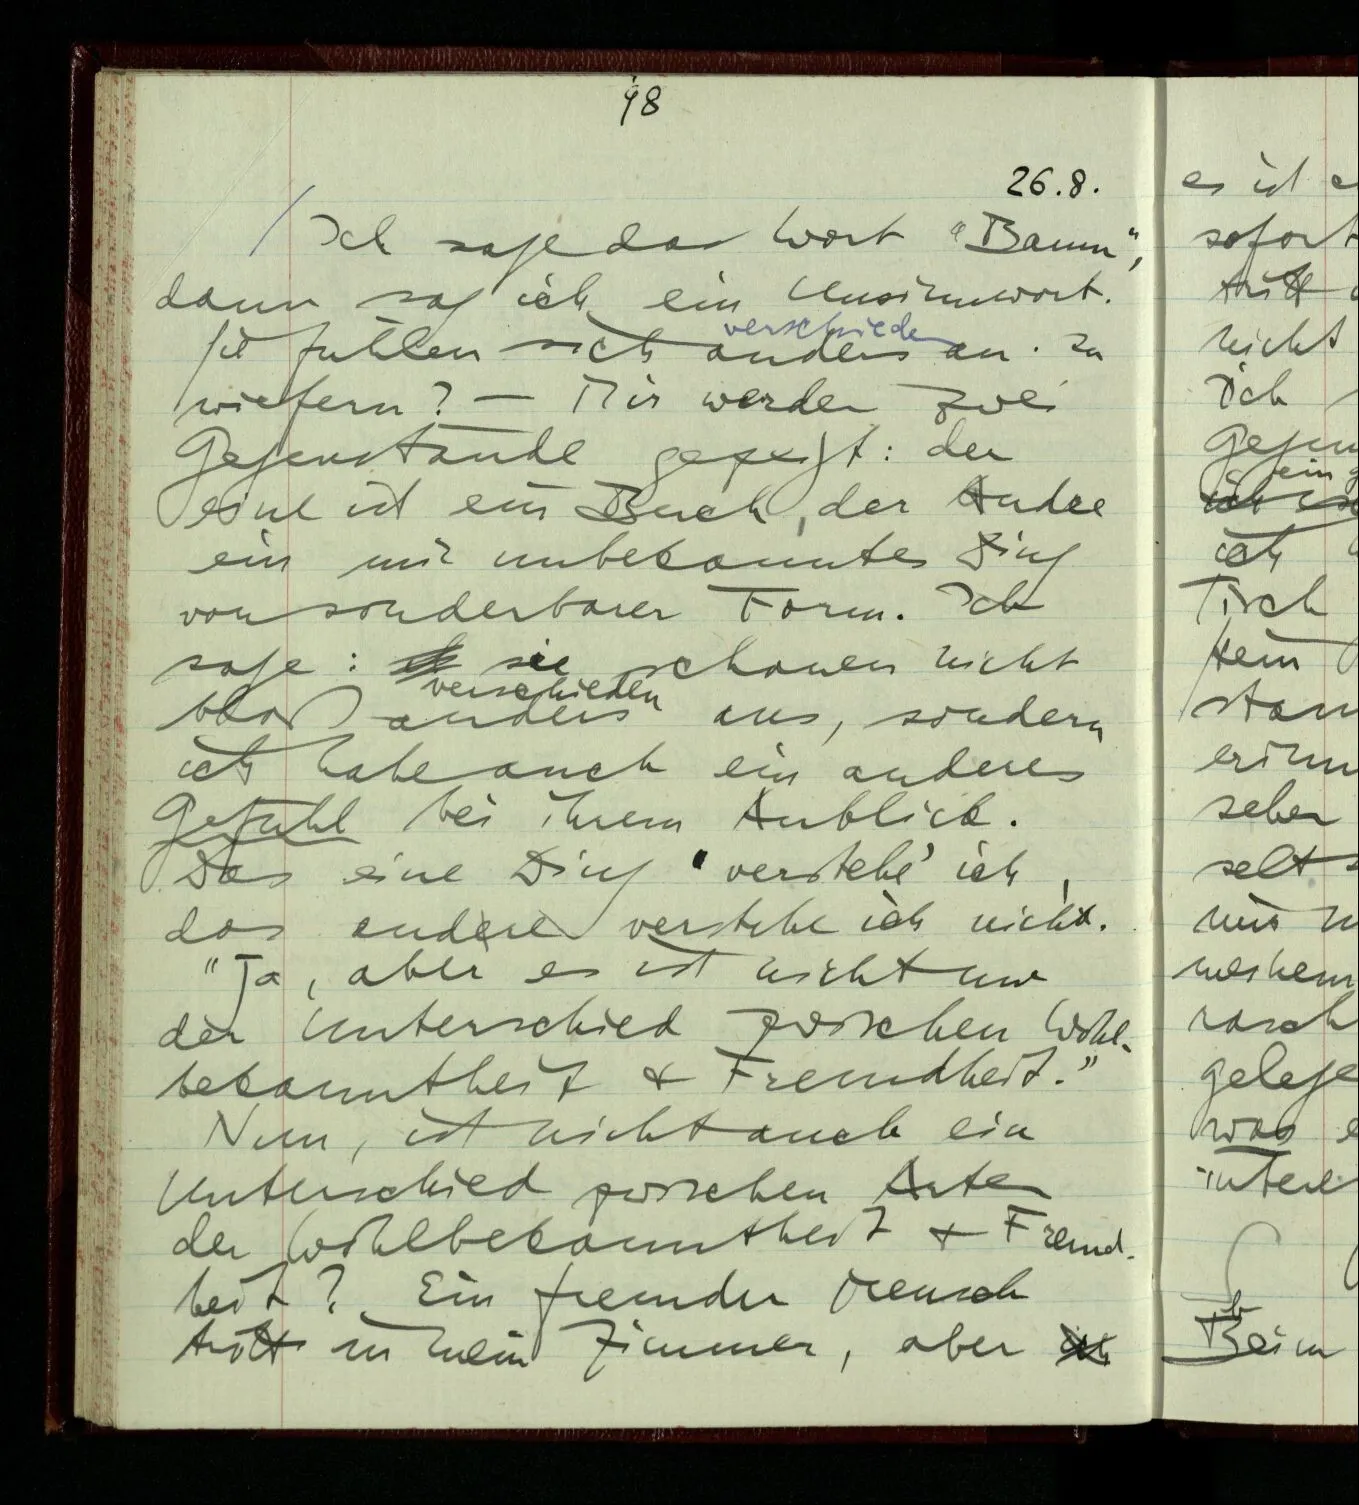 98
26.8.
/ Ich sage das Wort "Baum",
dann sag ich ein Unsinnwort.
verschieden
Sie fühlen sich anders an. In
wiefern? — Mir werden zwei
Gegenstände gezeigt: der
eine ist ein Buch, der Andre
ein mir unbekanntes Ding
von sonderbarer Form. Ich
sage: sie schauen nicht
verschieden
bloß anders aus, sondern
ich habe auch ein anderes
Gefühl bei ihrem Anblick.
Das eine Ding 'verstehe' ich,
das andere verstehe ich nicht.
"Ja, aber es ist nicht nur
der Unterschied zwischen Wohl-
bekanntheit & Fremdheit."
Nun, ist nicht auch ein
Unterschied zwischen Arten
der Wohlbekanntheit & Fremd-
heit? Ein fremder Mensch
tritt in mein Zimmer, aber ich
es ist
sofort
tritt
nicht
Ich
ein
ich
Tisch
erinn
seher
selts
mir
rasch
gelege
was
Beim